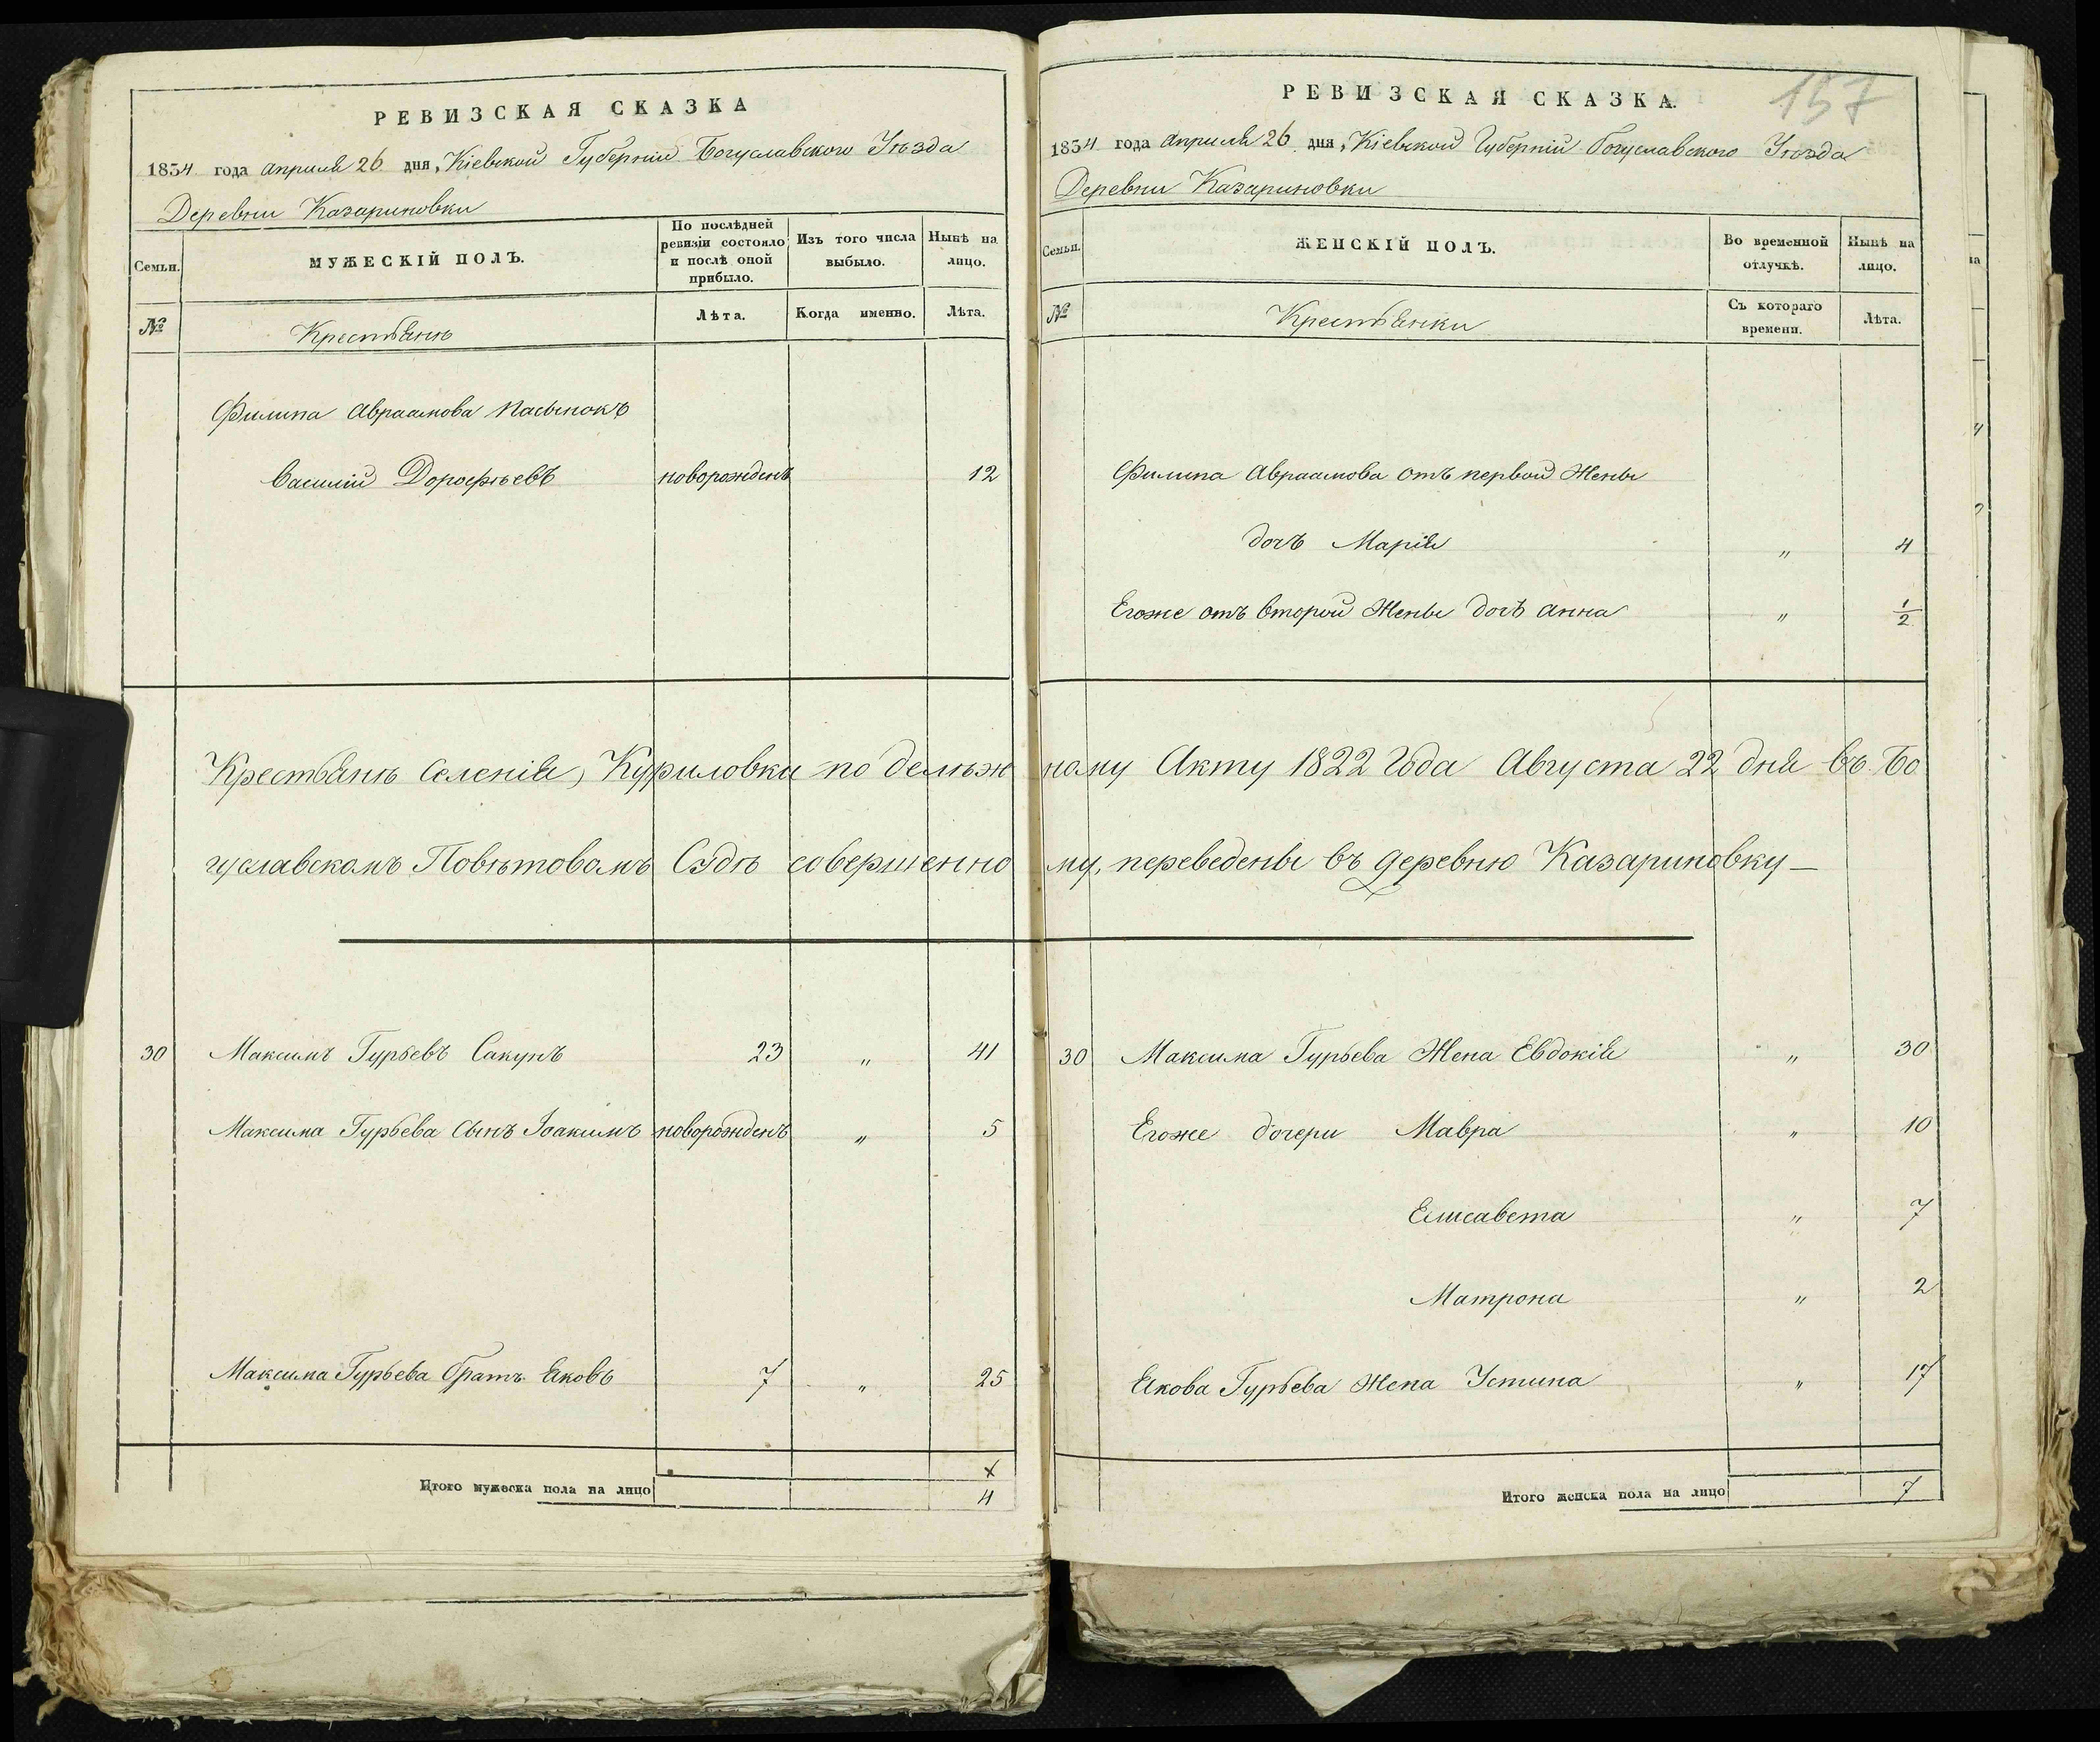 РЕВИЗСКАЯ СКАЗКА
1834 года Апреля 26 дня, Кіевской Губерніи Богуславского Уѣзда
Деревни Казариновки
Семьи.
МУЖЕСКІЙ ПОЛЪ.
По послѣдней
ревизіи состояло
и послѣ оной
прибыло.
Изъ того числа
выбыло.
Нынѣ на
лицо.
№
Крестьянъ
Лѣта.
Когда именно.
Лѣта.
Филипа Авраамова пасынокъ
Василій Дорофѣевъ новорожденъ 12
Крестьянъ Селенія, Куриловки по делѣж
гуславскомъ Повѣтовомъ Судѣ совершенно
30 Максимъ Гурьевъ Сакунъ 23 „ 41
Максима Гурьева сынъ Іоакимъ новорожденъ „ 5
Максима Гурьева братъ Яковъ 7 „ 25
х
Итого мужеска пола на лицо 4
157
РЕВИЗСКАЯ СКАЗКА.
1834 года Апреля 26 дня, Кіевской Губерніи Богуславского Уѣзда
Деревни Казариновки
Семьи.
ЖЕНСКІЙ ПОЛЪ.
Во временной
отлучкѣ.
Нынѣ на
лицо.
№
Крестьянки
Съ котораго
времени.
Лѣта.
Филипа Авраамова отъ первой Жены
дочь Марія „ 4
Егоже отъ второй Жены дочь Анна „ 1/2
ному Акту 1822 Года Августа 22 дня въ Бо
му, переведены въ деревню Казариновку —
30 Максима Гурьева Жена Евдокія „ 30
Егоже дочери Мавра „ 10
Елисавета „ 7
Матрона „ 2
Якова Гурьева Жена Устина „ 17
Итого женска пола на лицо 7